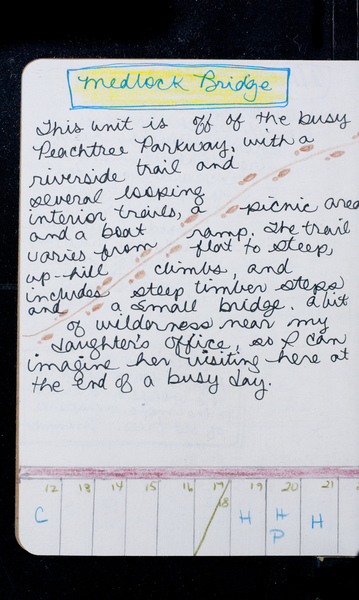 Medlock Bridge
This unit is off of the busy
Peachtree Parkway, with a
riverside trail and
several looping
interior trails, a picnic area
and a boat ramp. The trail
varies from flat to steep,
up-hill climbs, and
includes steep timber steps
and a small bridge. A bit
of wilderness near my
daughter's office, so I can
imagine her visiting here at
the end of a busy day.
12 13 14 15 16 17/18 19 20 21
C H H H
P